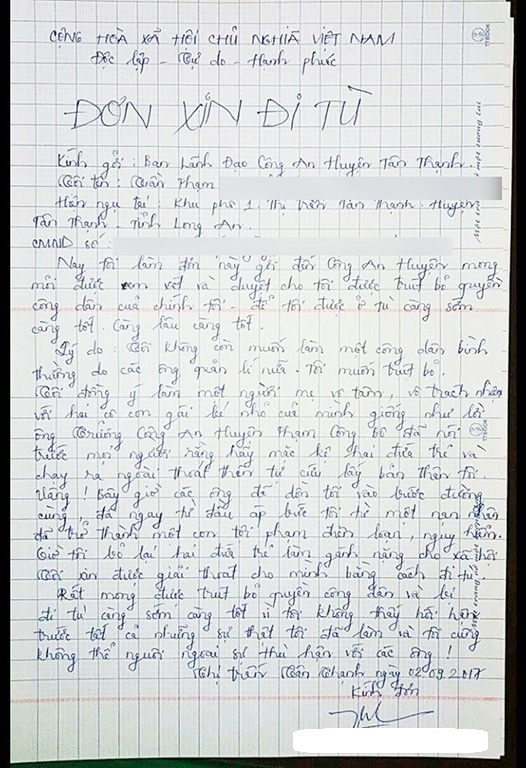 CỘNG HOÀ XÃ HỘI CHỦ NGHĨA VIỆT NAM
Độc lập - Tự do - Hạnh phúc
ĐƠN XIN ĐI TÙ
Kính gởi : Ban Lãnh Đạo Công An Huyện Tân Thạnh.
Tôi tên : Trần Phạm
Hiện ngụ tại : Khu phố 1. Thị trấn Tân Thạnh. Huyện
Tân Thạnh. Tỉnh Long An.
CMND số :
Nay tôi làm đơn này gởi đến Công An Huyện mong
mỏi được xem xét và duyệt cho tôi được truất bỏ quyền
công dân của chính tôi - để tôi được ở tù càng sớm
càng tốt. Càng lâu càng tốt.
Lý do : Tôi không còn muốn làm một công dân bình
thường do các ông quản lí nữa. Tôi muốn truất bỏ.
Tôi đồng ý làm một người mẹ vô tâm, vô trách nhiệm
với hai cô con gái bé nhỏ của mình giống như lời
ông Trưởng Công An Huyện Phạm Công Bô đã nói
trước mọi người rằng hãy mặc kệ hai đứa trẻ và
chạy ra ngoài thoát thân tự cứu lấy bản thân tôi.
Vâng ! Bây giờ các ông đã dồn tôi vào bước đường
cùng, đã ngay từ đầu áp bức tôi từ một nạn nhân
đã trở thành một con tội phạm điên loạn, nguy hiểm.
Giờ tôi bỏ lại hai đứa trẻ làm gánh nặng cho xã hội
Tôi xin được giải thoát cho mình bằng cách đi tù.
Rất mong được truất bỏ quyền công dân và
đi tù càng sớm càng tốt vì tôi không thấy hối hận
trước tất cả những sự thật tôi đã làm và tôi cũng
không thể nguôi ngoai sự thù hận với các ông !
Thị trấn Tân Thạnh ngày 02.09.2017
Kính đơn